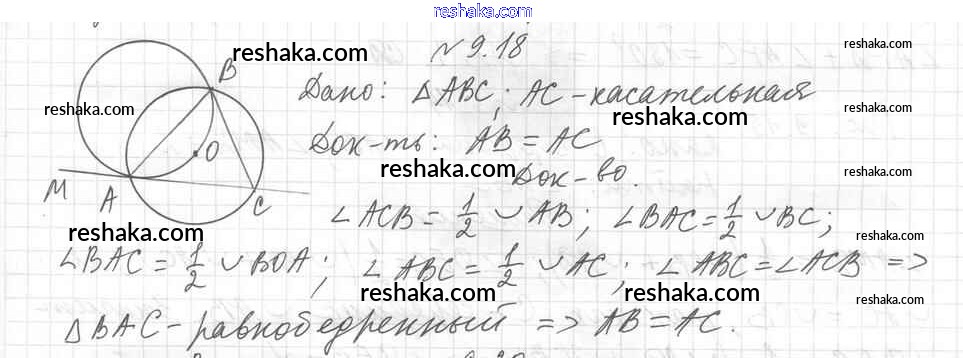 reshaka.com
N 9.18
reshaka.com
reshaka.com
B
Дано: △ABC; AC - касательная
reshaka.com
reshaka.com
reshaka.com
O
Док-ть: AB = AC
reshaka.com
reshaka.com
Док-во.
M
A
C
reshaka.com
∠ACB = 1/2 ∪ AB; ∠BAC = 1/2 ∪ BC;
reshaka.com
reshaka.com
∠BAC = 1/2 ∪ BOA; ∠ABC = 1/2 ∪ AC; ∠ABC = ∠ACB =>
reshaka.com
reshaka.com
reshaka.com
△BAC - равнобедренный => AB = AC.